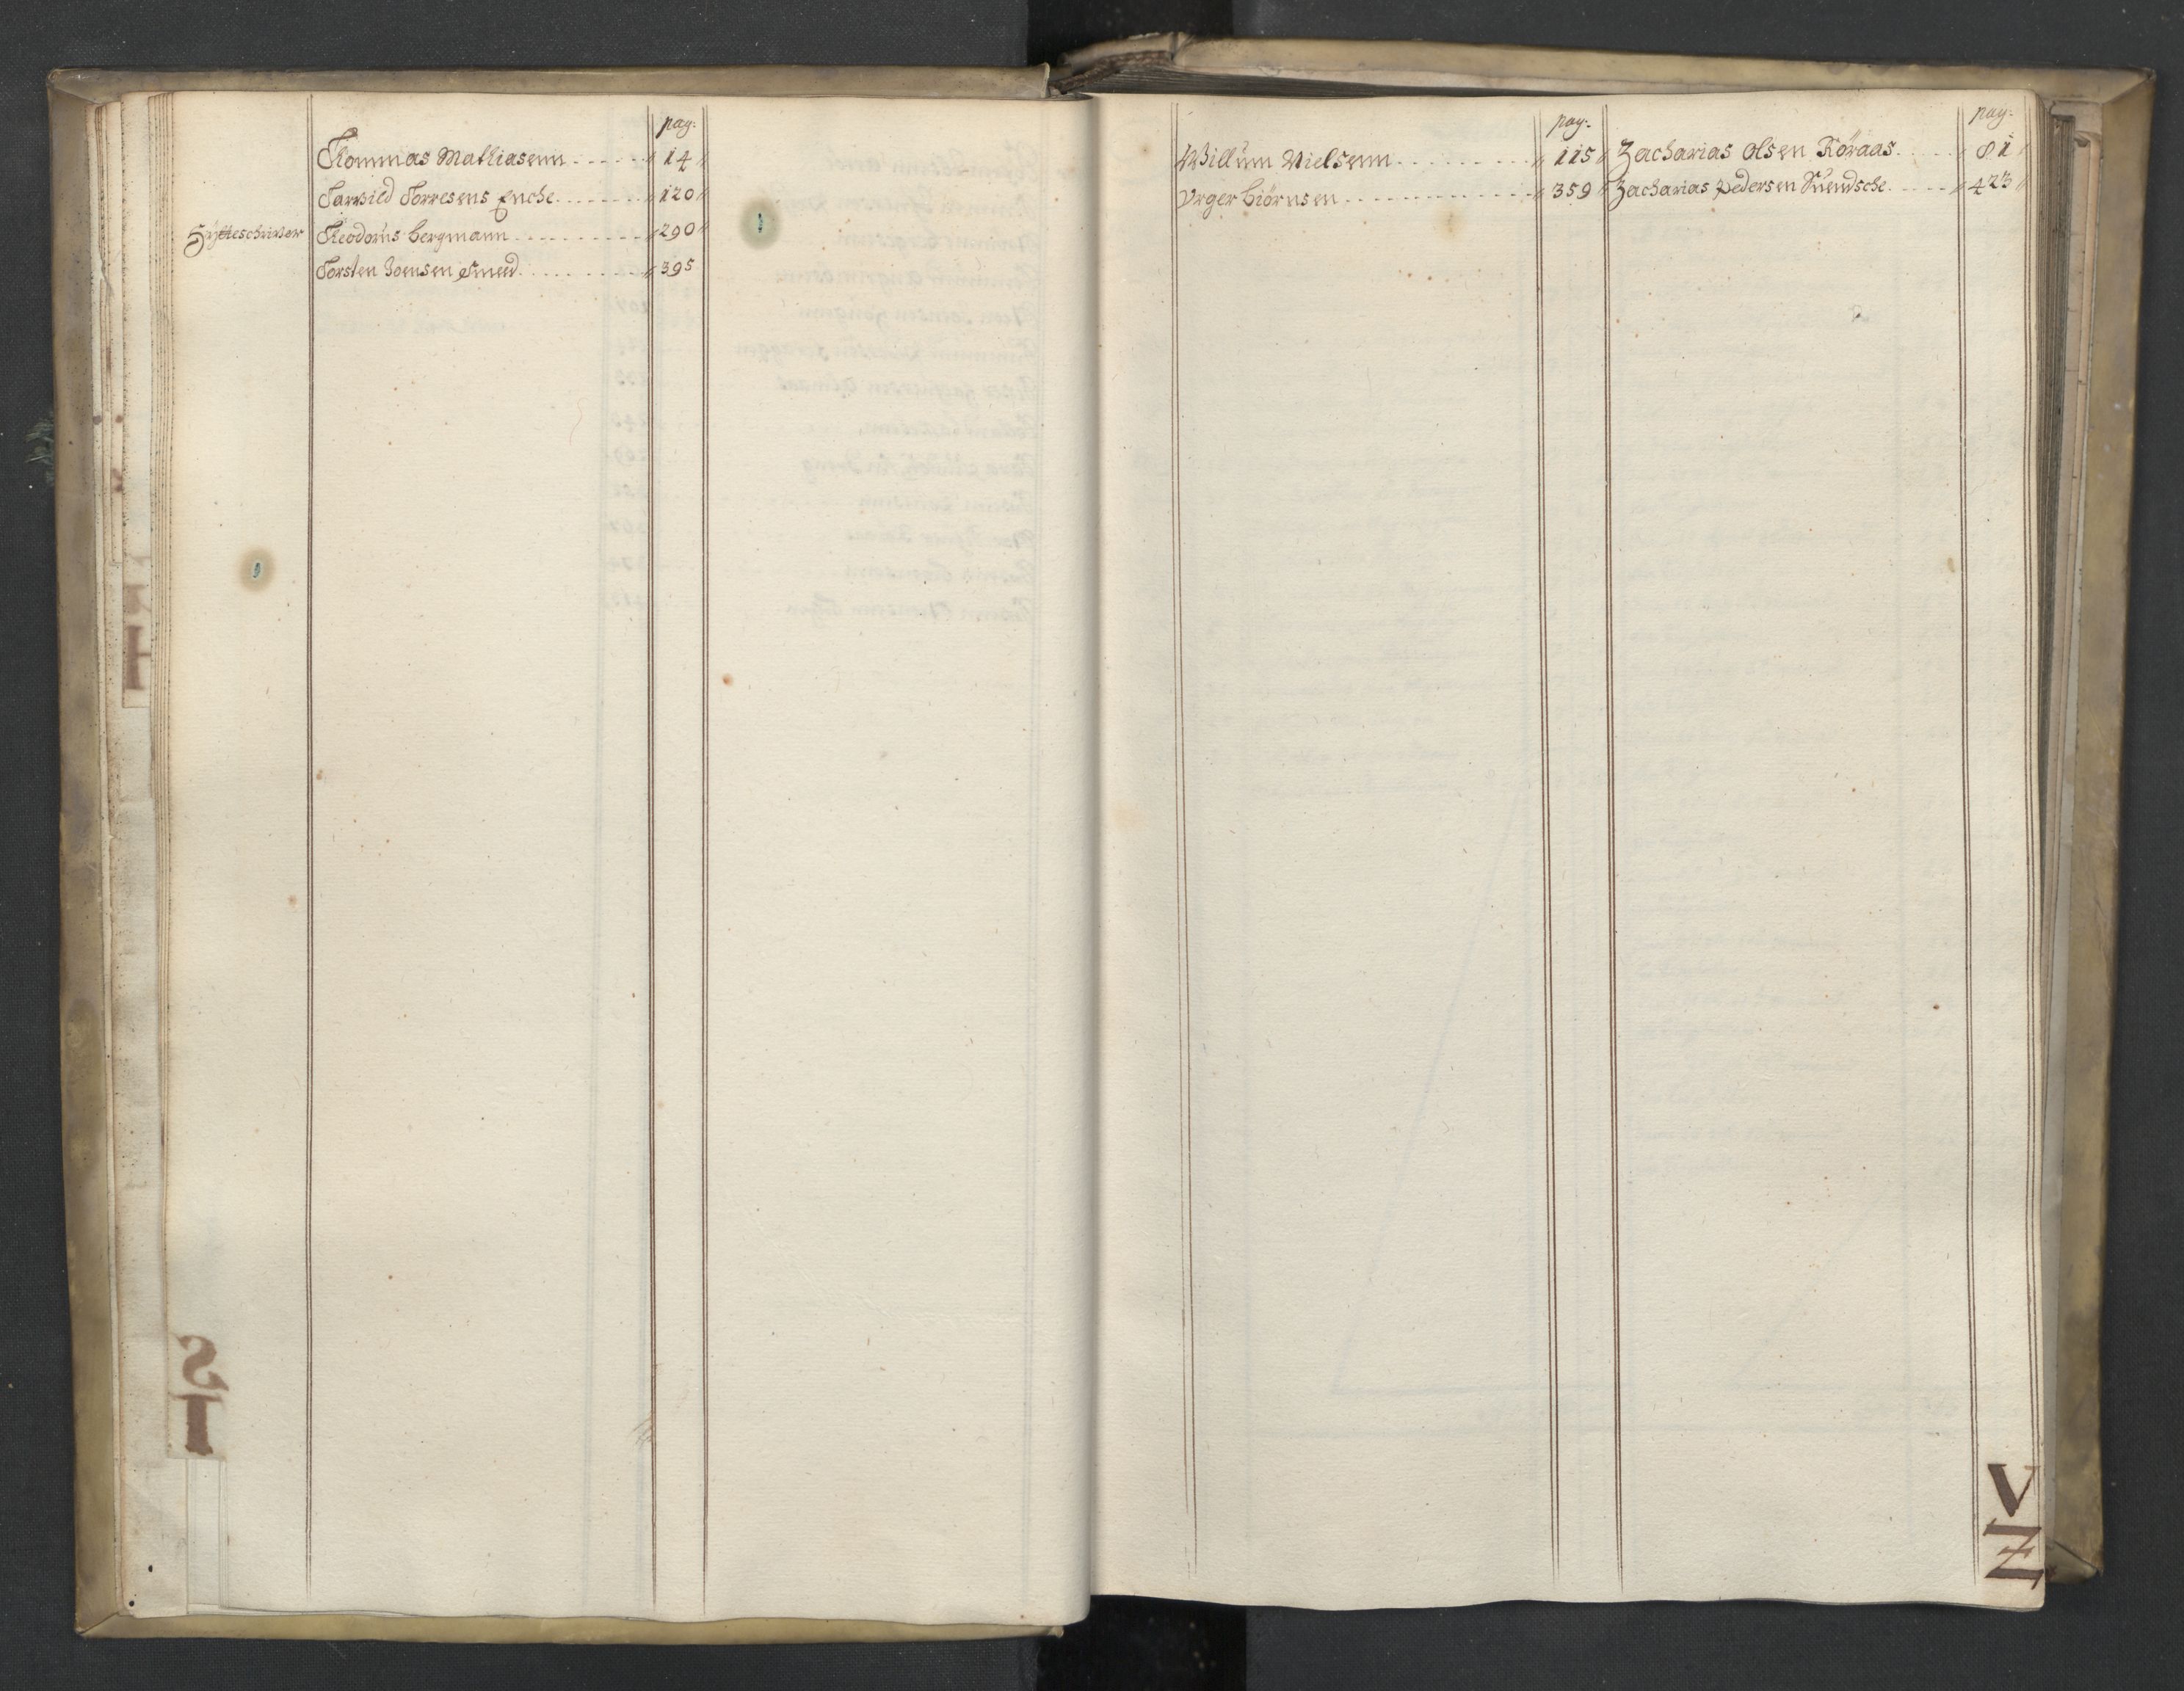 pag:
Thommas Mathiasenn . . . . . . " 14 "
Tarvild Torresens Enche . . . . . . . " 120 "
Hÿtteschriver Theodorus bergmann . . . . . . . . . . " 290 "
Torsten Joensen Smed . . . . . . . . . . " 395
S
T
H
pag:
Willum Nielsenn . . . . . . . . . " 115 "
Vrger biörnsen . . . . . . . . . . . . . " 359 "
pag:
Zacharias Olsen Röraas . . . . . " 81 "
Zacharias Pedersen Suendsche . . . . . " 423 "
V
Z